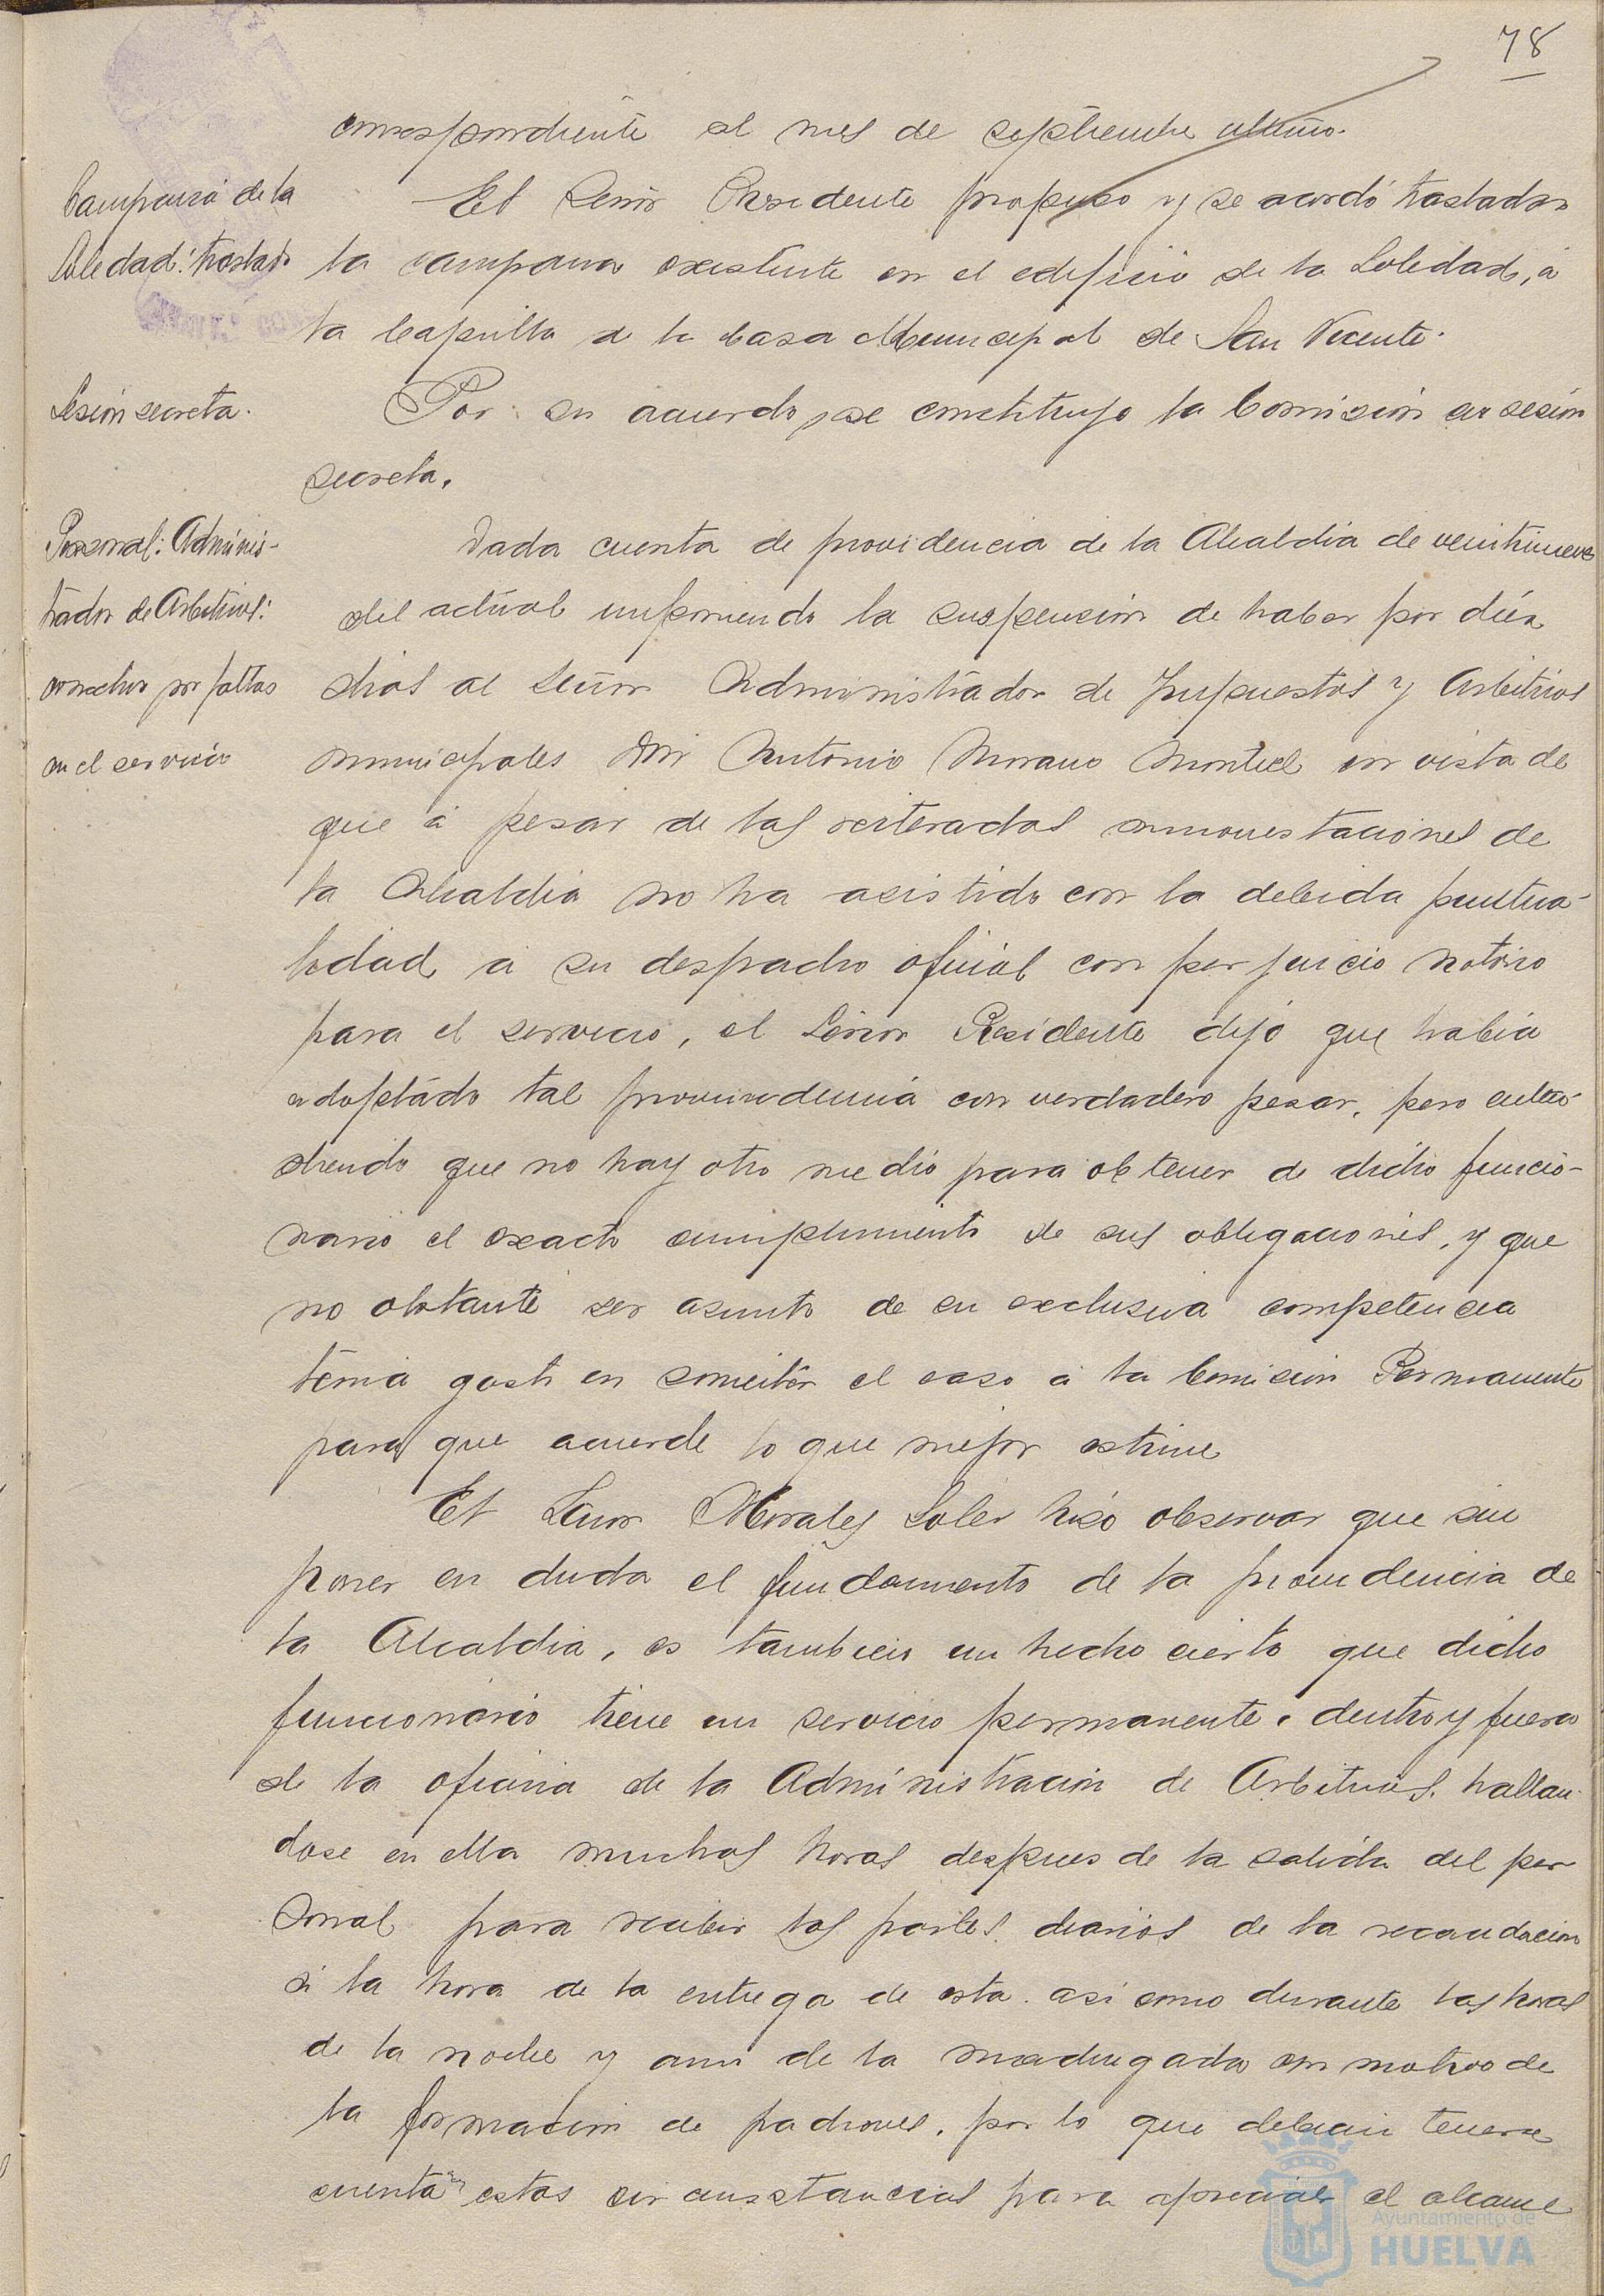 78
correspondiente al mes de septiembre último.
Campana de la
Soledad: traslado
El Señor Presidente propuso y se acordó trasladar
la campana existente en el edificio de la Soledad, á
la Capilla de la Casa Municipal de San Vicente.
Sesión secreta.
Por su acuerdo, se constituyó la Comisión en sesión
secreta.
Personal: Adminis-
trador de Arbitrios:
correctivo por faltas
en el servicio
Dada cuenta de providencia de la Alcaldia de veintinueve
del actual imponiendo la suspensión de haber por diez
dias al Señor Administrador de Impuestos y Arbitrios
municipales Don Antonio Morano Montiel en vista de
que á pesar de las reiteradas amonestaciones de
la Alcaldia no ha asistido con la debida puntua-
lidad á su despacho oficial con perjuicio notorio
para el servicio, el Señor Presidente dijó que habia
adoptado tal providencia con verdadero pesar, pero enten-
diendo que no hay otro medio para obtener de dicho funcio-
nario el exacto cumplimiento de sus obligaciones, y que
no obstante ser asunto de su exclusiva competencia
tenia gusto en someter el caso á la Comisión Permanente
para que acuerde lo que mejor estime
El Señor Morales Soler hizo observar que sin
poner en duda el fundamento de la providencia de
la Alcaldia, es tambien un hecho cierto que dicho
funcionario tiene un servicio permanente dentro y fuera
de la oficina de la Administración de Arbitrios, hallan-
dose en ella muchas horas despues de la salida del per-
sonal para recibir los partes diarios de la recaudación
á la hora de la entrega de esta, asi como durante las horas
de la noche y aun de la madrugada con motivo de
la formación de padrones, por lo que debian tenerse
en cuenta estas circunstancias para apreciar el alcance
Ayuntamiento de
HUELVA